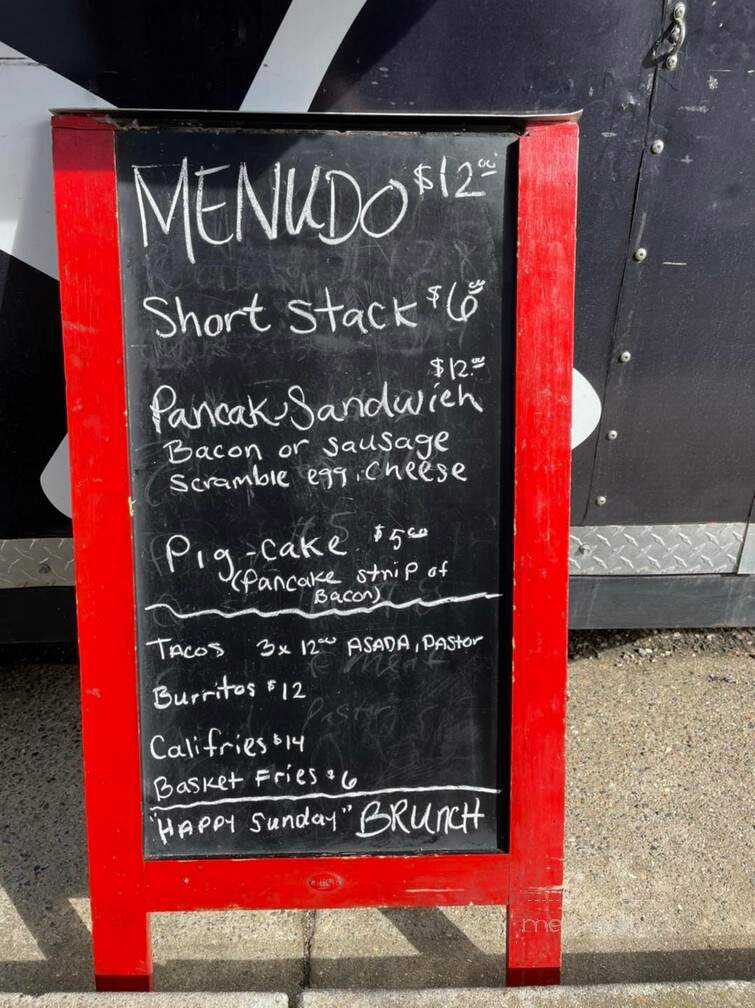 MENUDO $12.00
Short Stack $6.00
$12.00
Pancak Sandwich
Bacon or sausage
Scramble egg, cheese
Pig-cake $5.00
(Pancake strip of
Bacon)
Tacos 3x 12.00 ASADA, PAStor
Burritos $12
Califries $14
Basket Fries $6
"HAPPY Sunday" BRUncH